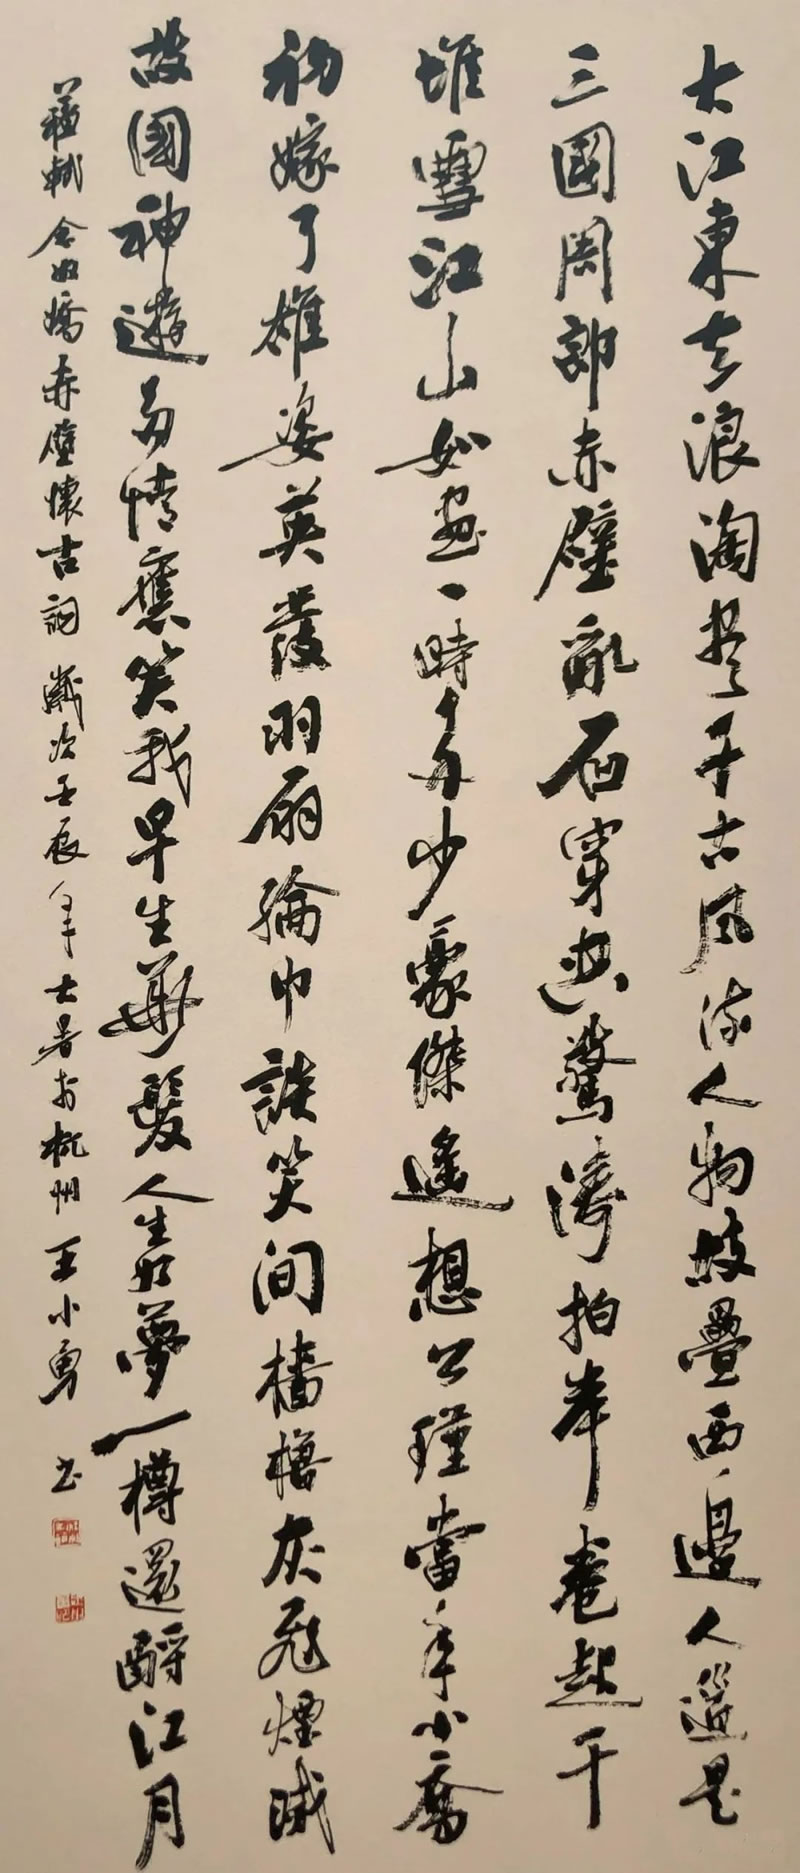 大江東去浪淘盡千古風流人物故壘西邊人道是
三國周郎赤壁亂石穿空驚濤拍岸卷起千
堆雪江山如畫一時多少豪傑遙想公瑾當年小喬
初嫁了雄姿英發羽扇綸巾談笑間檣櫓灰飛煙滅
故國神遊多情應笑我早生華髮人生如夢一樽還酹江月
蘇軾念奴嬌赤壁懷古詞歲次壬辰年大暑於杭州王小勇書